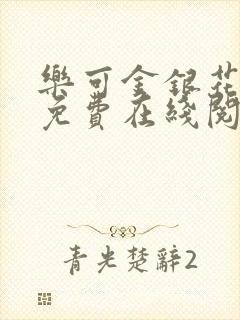 樂可金銀花
免費在綫閱
青光楚辭2